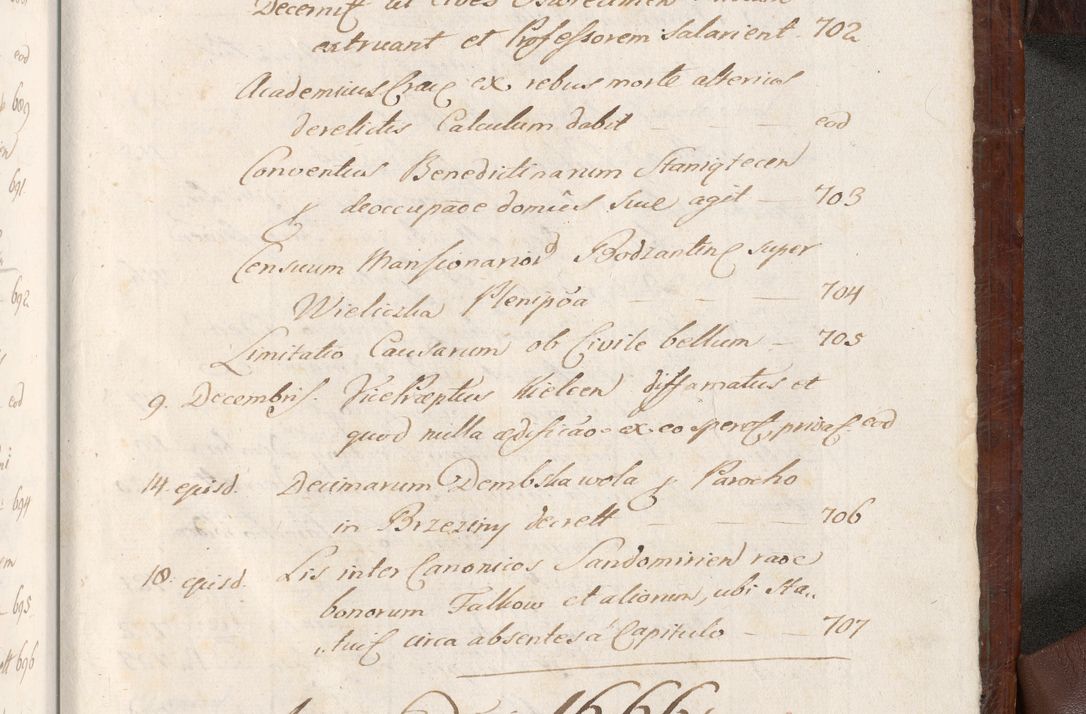 eod
689
691
692
eod
694
695
696
extruant et Professorem salarient 702
Academicus Crac ex rebus morte alterius
derelictis Calculum dabit — — — eod
Conventus Benedictinarum Staniątecen
deoccupaõe domûs suæ agit — 703
Censuum Mansionariorũ Bodzantinę super
Wieliczka Plenipõa — — — 704
Limitatio Causarum ob Civile bellum — 705
9. Decembris. VicePræptus Kielcen diffamatus et
quod nulla ædificão ex eo speret, privat. eod
14. ejusd. Decimarum Dembska wola p Parocho
in Brzeziny decrett — — — 706
18. ejusd. Lis inter Canonicos Sandomirien raõe
bonorum Falkow et aliorum, ubi Sta„
„tuit circa absentes à Capitulo — — 707
1666